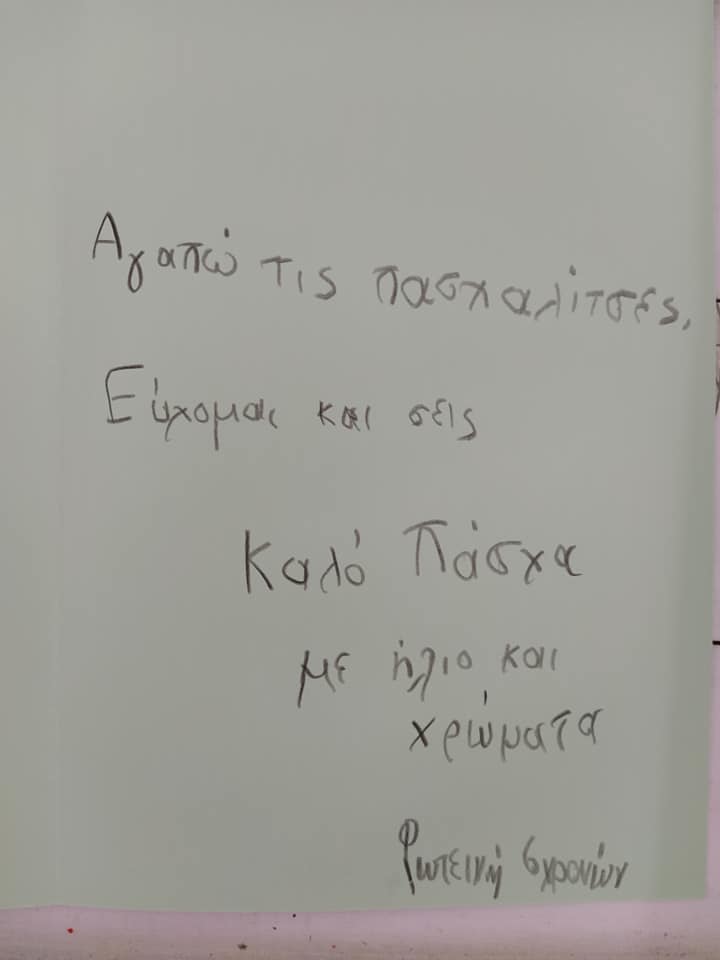 Αγαπώ τις πασχαλίτσες.
Εύχομαι και σεις
Καλό Πάσχα
με ήλιο και
χρώματα
Φωτεινή 6χρονών